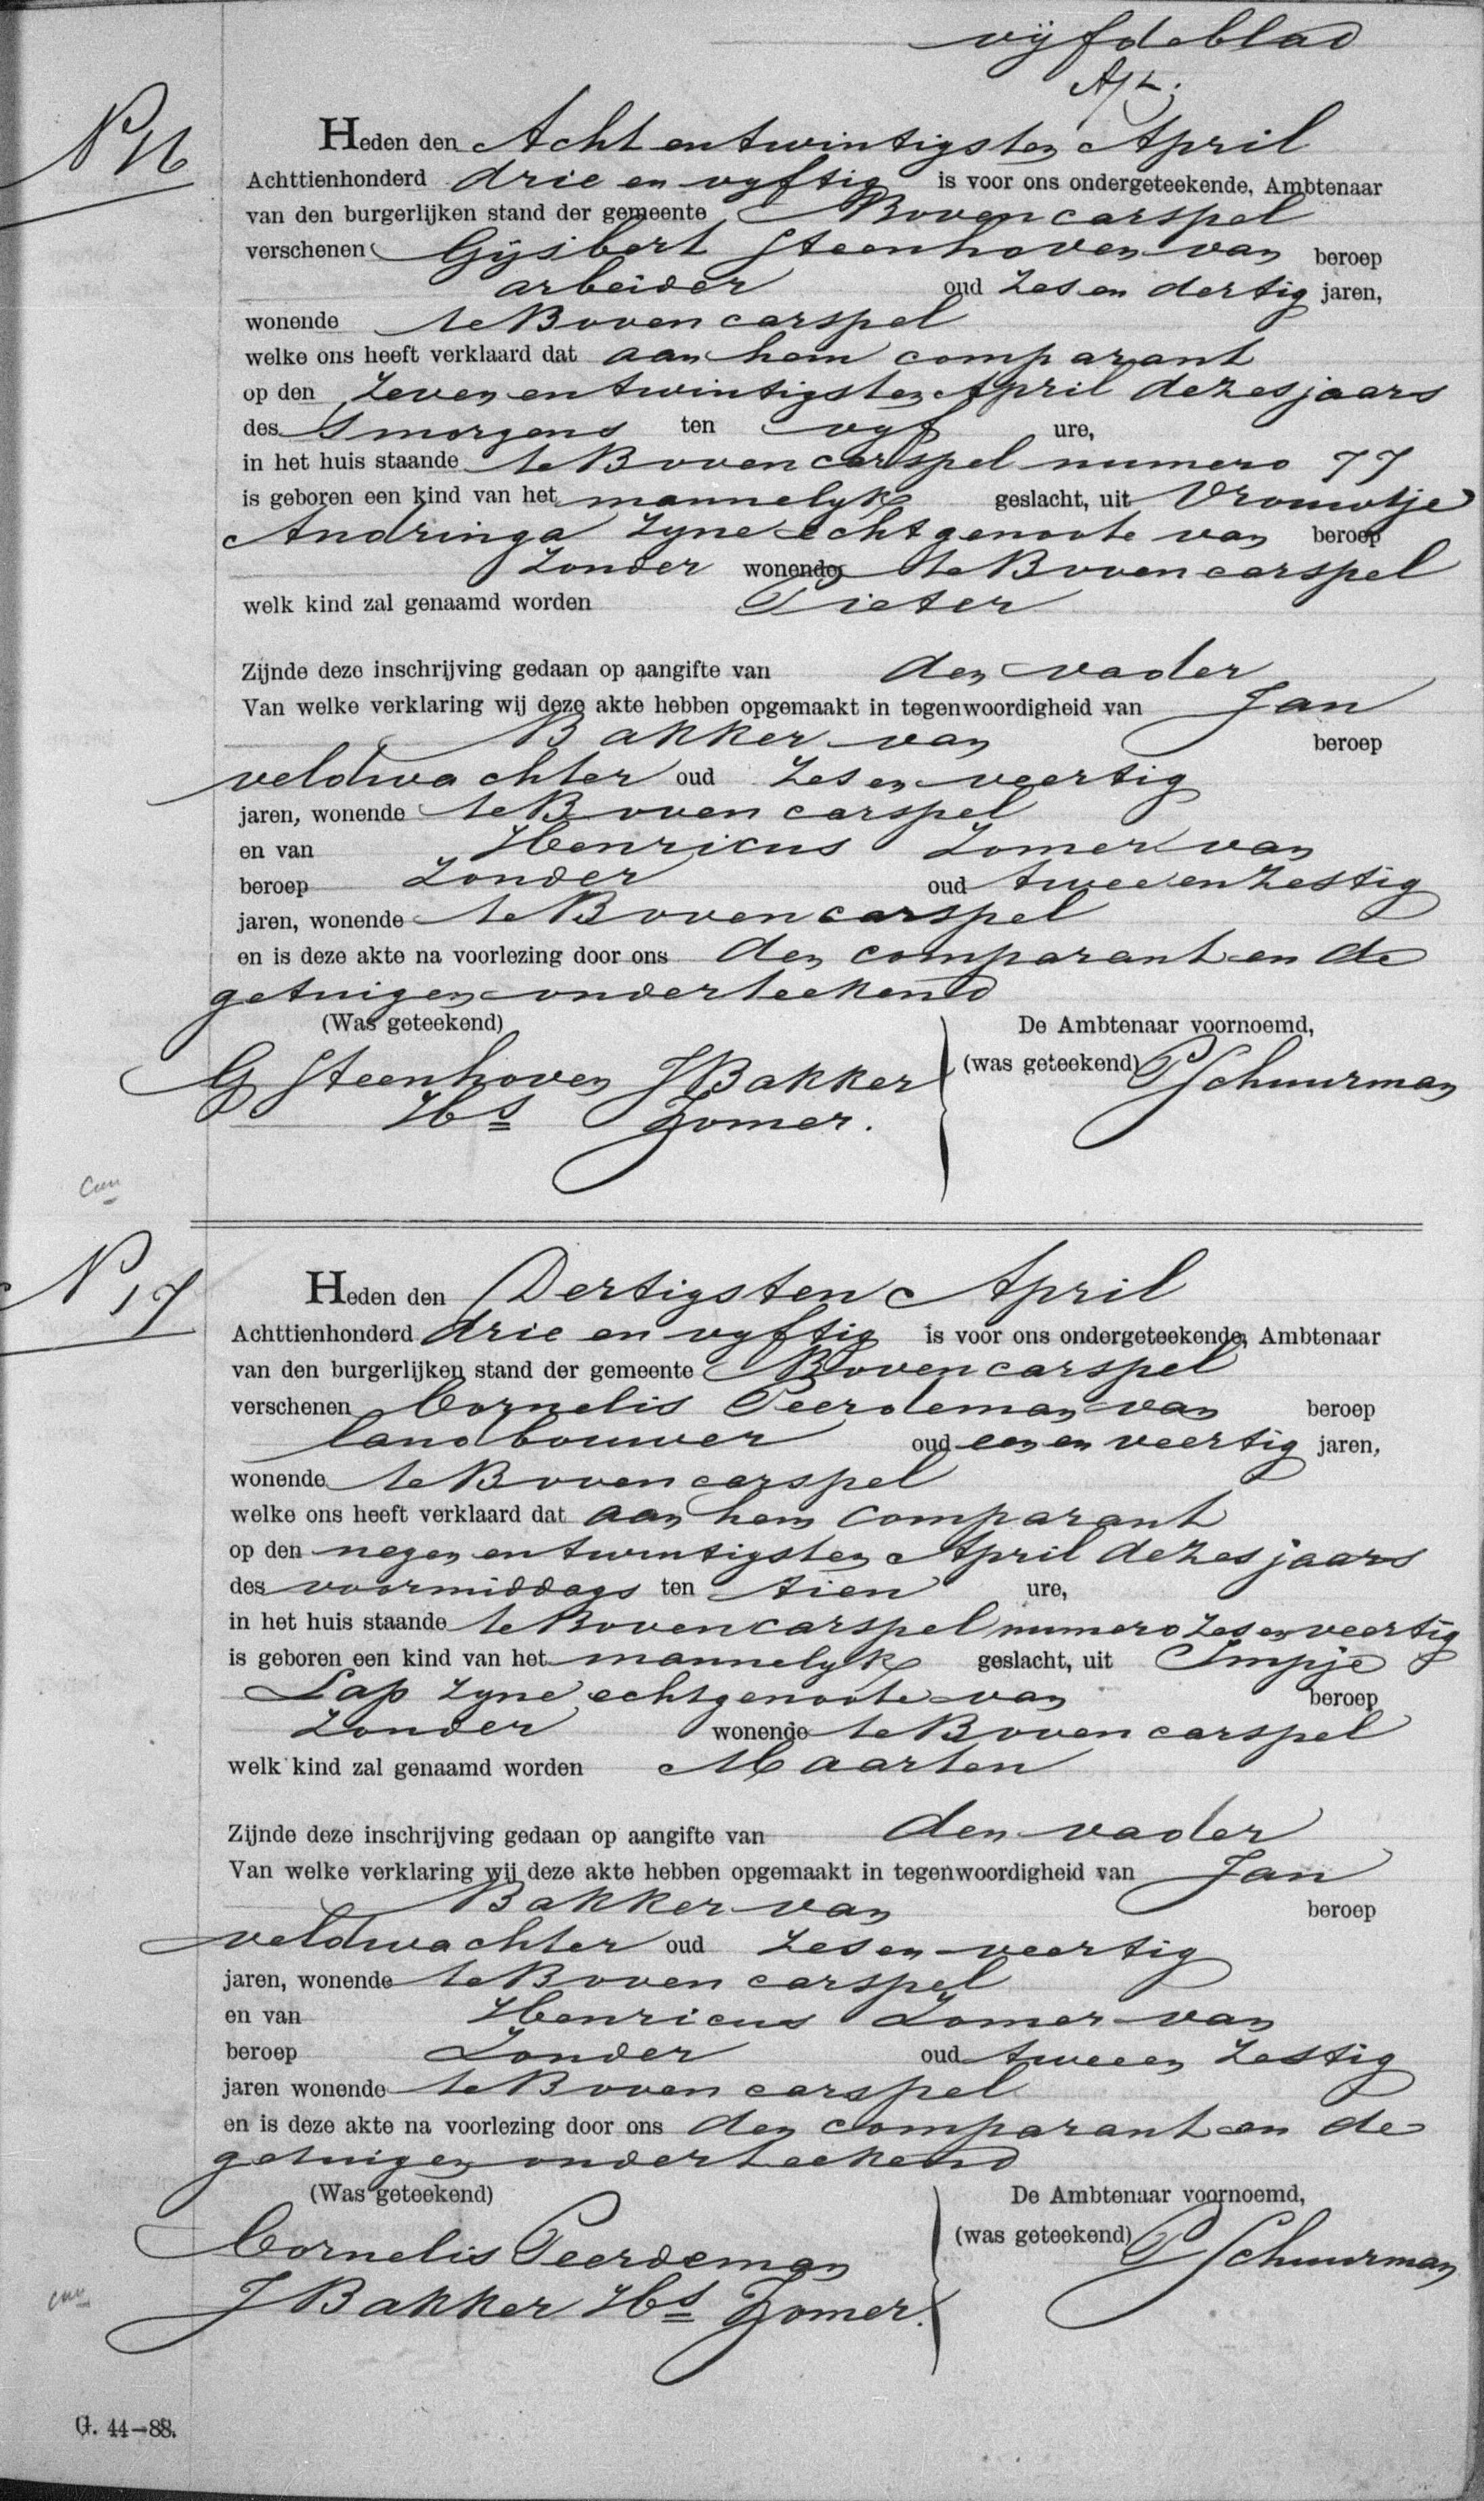 vijfde blad
N 16
Heden den Acht en twintigsten April
Achttienhonderd drie en vyftig is voor ons ondergeteekende, Ambtenaar
van den burgerlijken stand der gemeente Bovencarspel
verschenen Gijsbert Steenhoven van beroep
arbeider oud zes en dertig jaren,
wonende te Bovencarspel
welke ons heeft verklaard dat aan hem comparant
op den zeven en twintigsten April dezes jaars
des smorgens ten vyf ure,
in het huis staande te Bovencarspel numero 77
is geboren een kind van het mannelyk geslacht, uit Vrouwtje
Andringa zyne echtgenoote van beroep
zonder wonende te Bovencarspel
welk kind zal genaamd worden Pieter
Zijnde deze inschrijving gedaan op aangifte van den vader
Van welke verklaring wij deze akte hebben opgemaakt in tegenwoordigheid van Jan
Bakker van beroep
veldwachter oud zes en veertig
jaren, wonende te Bovencarspel
en van Henricus Zomer van
beroep zonder oud twee en zestig
jaren, wonende te Bovencarspel
en is deze akte na voorlezing door ons den comparant en de
getuigen onderteekend
(Was geteekend) De Ambtenaar voornoemd,
G Steenhoven J Bakker (was geteekend) P Schuurman
Hs Zomer.
N 17
Heden den Dertigsten April
Achttienhonderd drie en vyftig is voor ons ondergeteekende, Ambtenaar
van den burgerlijken stand der gemeente Bovencarspel
verschenen Cornelis Peerdeman van beroep
landbouwer oud een en veertig jaren,
wonende te Bovencarspel
welke ons heeft verklaard dat aan hem comparant
op den negen en twintigsten April dezes jaars
des voormiddags ten tien ure,
in het huis staande te Bovencarspel numero zes en veertig
is geboren een kind van het mannelyk geslacht, uit Impje
Lap zyne echtgenoote van beroep
zonder wonende te Bovencarspel
welk kind zal genaamd worden Maarten
Zijnde deze inschrijving gedaan op aangifte van den vader
Van welke verklaring wij deze akte hebben opgemaakt in tegenwoordigheid van Jan
Bakker van beroep
veldwachter oud zes en veertig
jaren, wonende te Bovencarspel
en van Henricus Zomer van
beroep zonder oud twee en zestig
jaren wonende te Bovencarspel
en is deze akte na voorlezing door ons den comparant en de
getuigen onderteekend
(Was geteekend) De Ambtenaar voornoemd,
Cornelis Peerdeman (was geteekend) P Schuurman
J Bakker Hs Zomer.
G. 44-88.